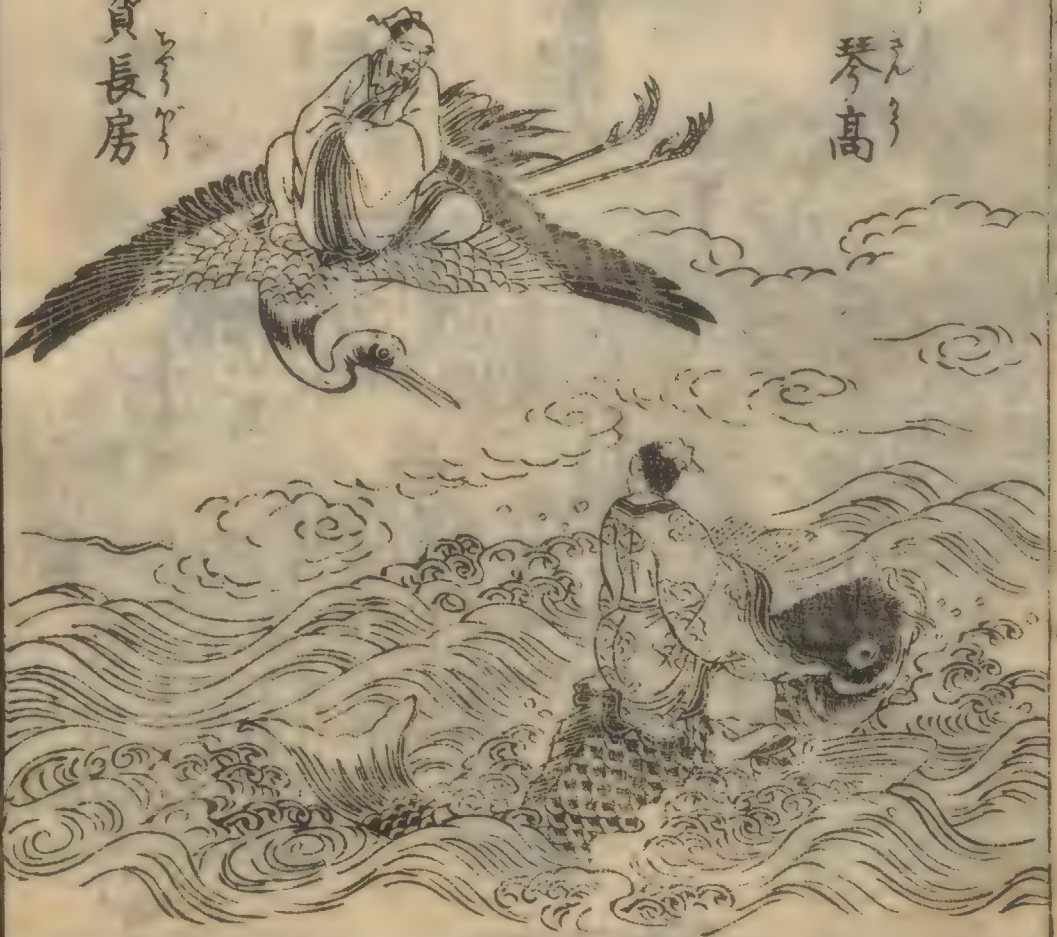 琴高
きんかう
費長房
ちやうばう